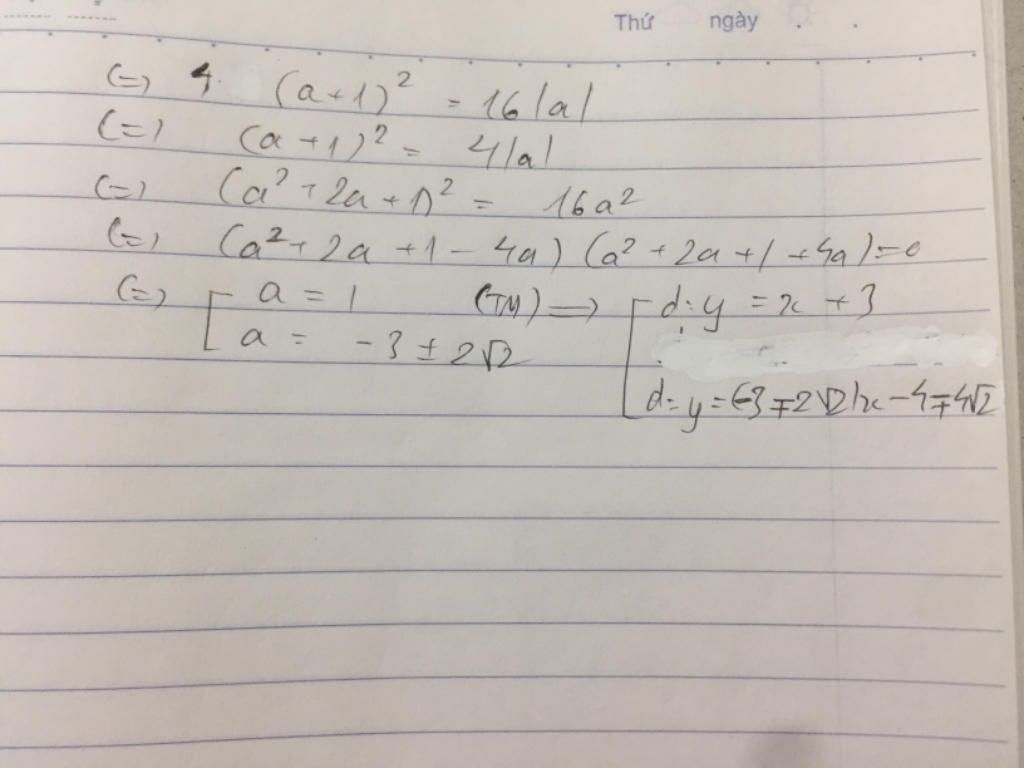 Thứ ngày . .
(=) 4. (a+1)² = 16|a|
(=) (a+1)² = 4|a|
(=) (a²+2a+1)² = 16a²
(=) (a²+2a+1-4a)(a²+2a+1+4a)=0
(=) [ a = 1 (TM) => [ d: y = x + 3
a = -3 ± 2√2
d: y = (-3 ∓ 2√2)x - 4 ∓ 4√2